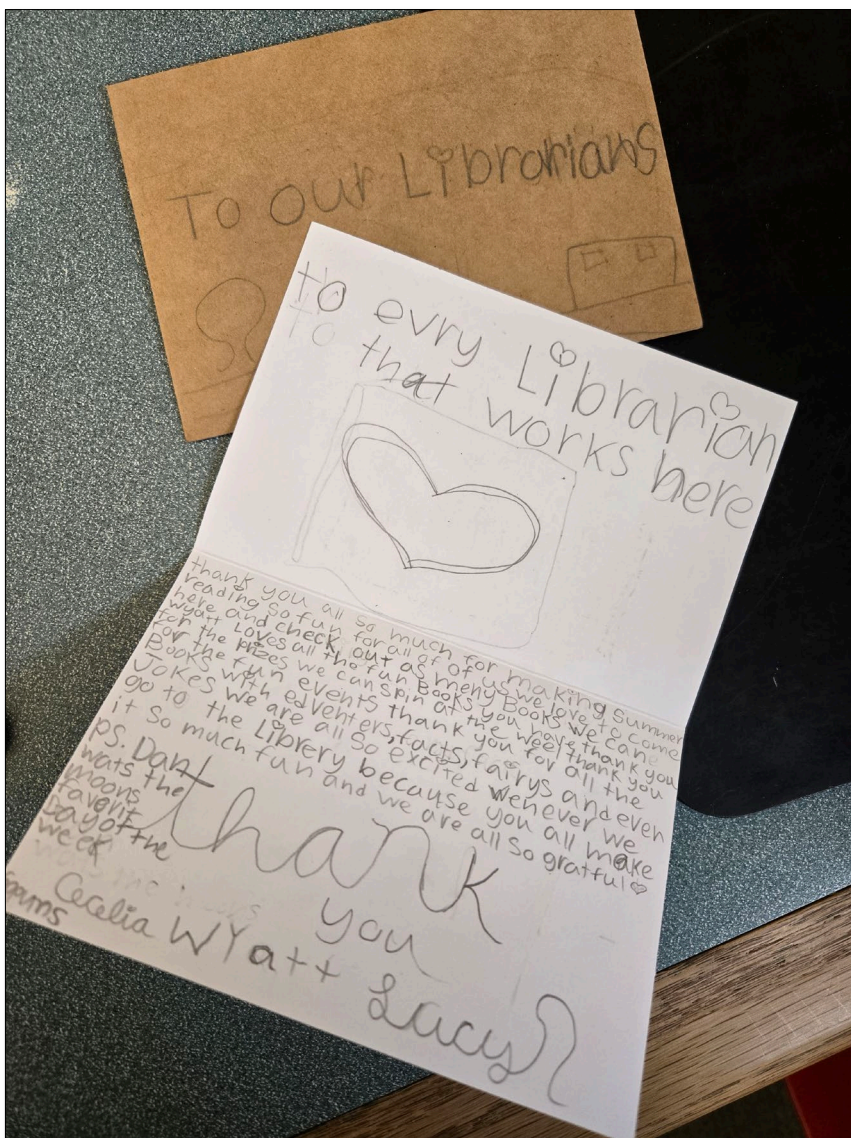 To our Librarians
to evry Librarian
To
that works here
thank you all so much for making summer
reading so fun for all of of us we love to come
here and check out as meny Books we cane
wyatt Loves all the fun Books you have, thank you
for the prizes we can spin at the weel thank you
for the fun events thank you for all the
Books with edventers, facts, fairys and even
Jokes we are all so excited wenever we
go to the Librery because you all make
it so much fun and we are all so gratful
ps. Dan
wats the
moons
favorit
Day of the
week
thank
you
Cecelia Wyatt Lacy